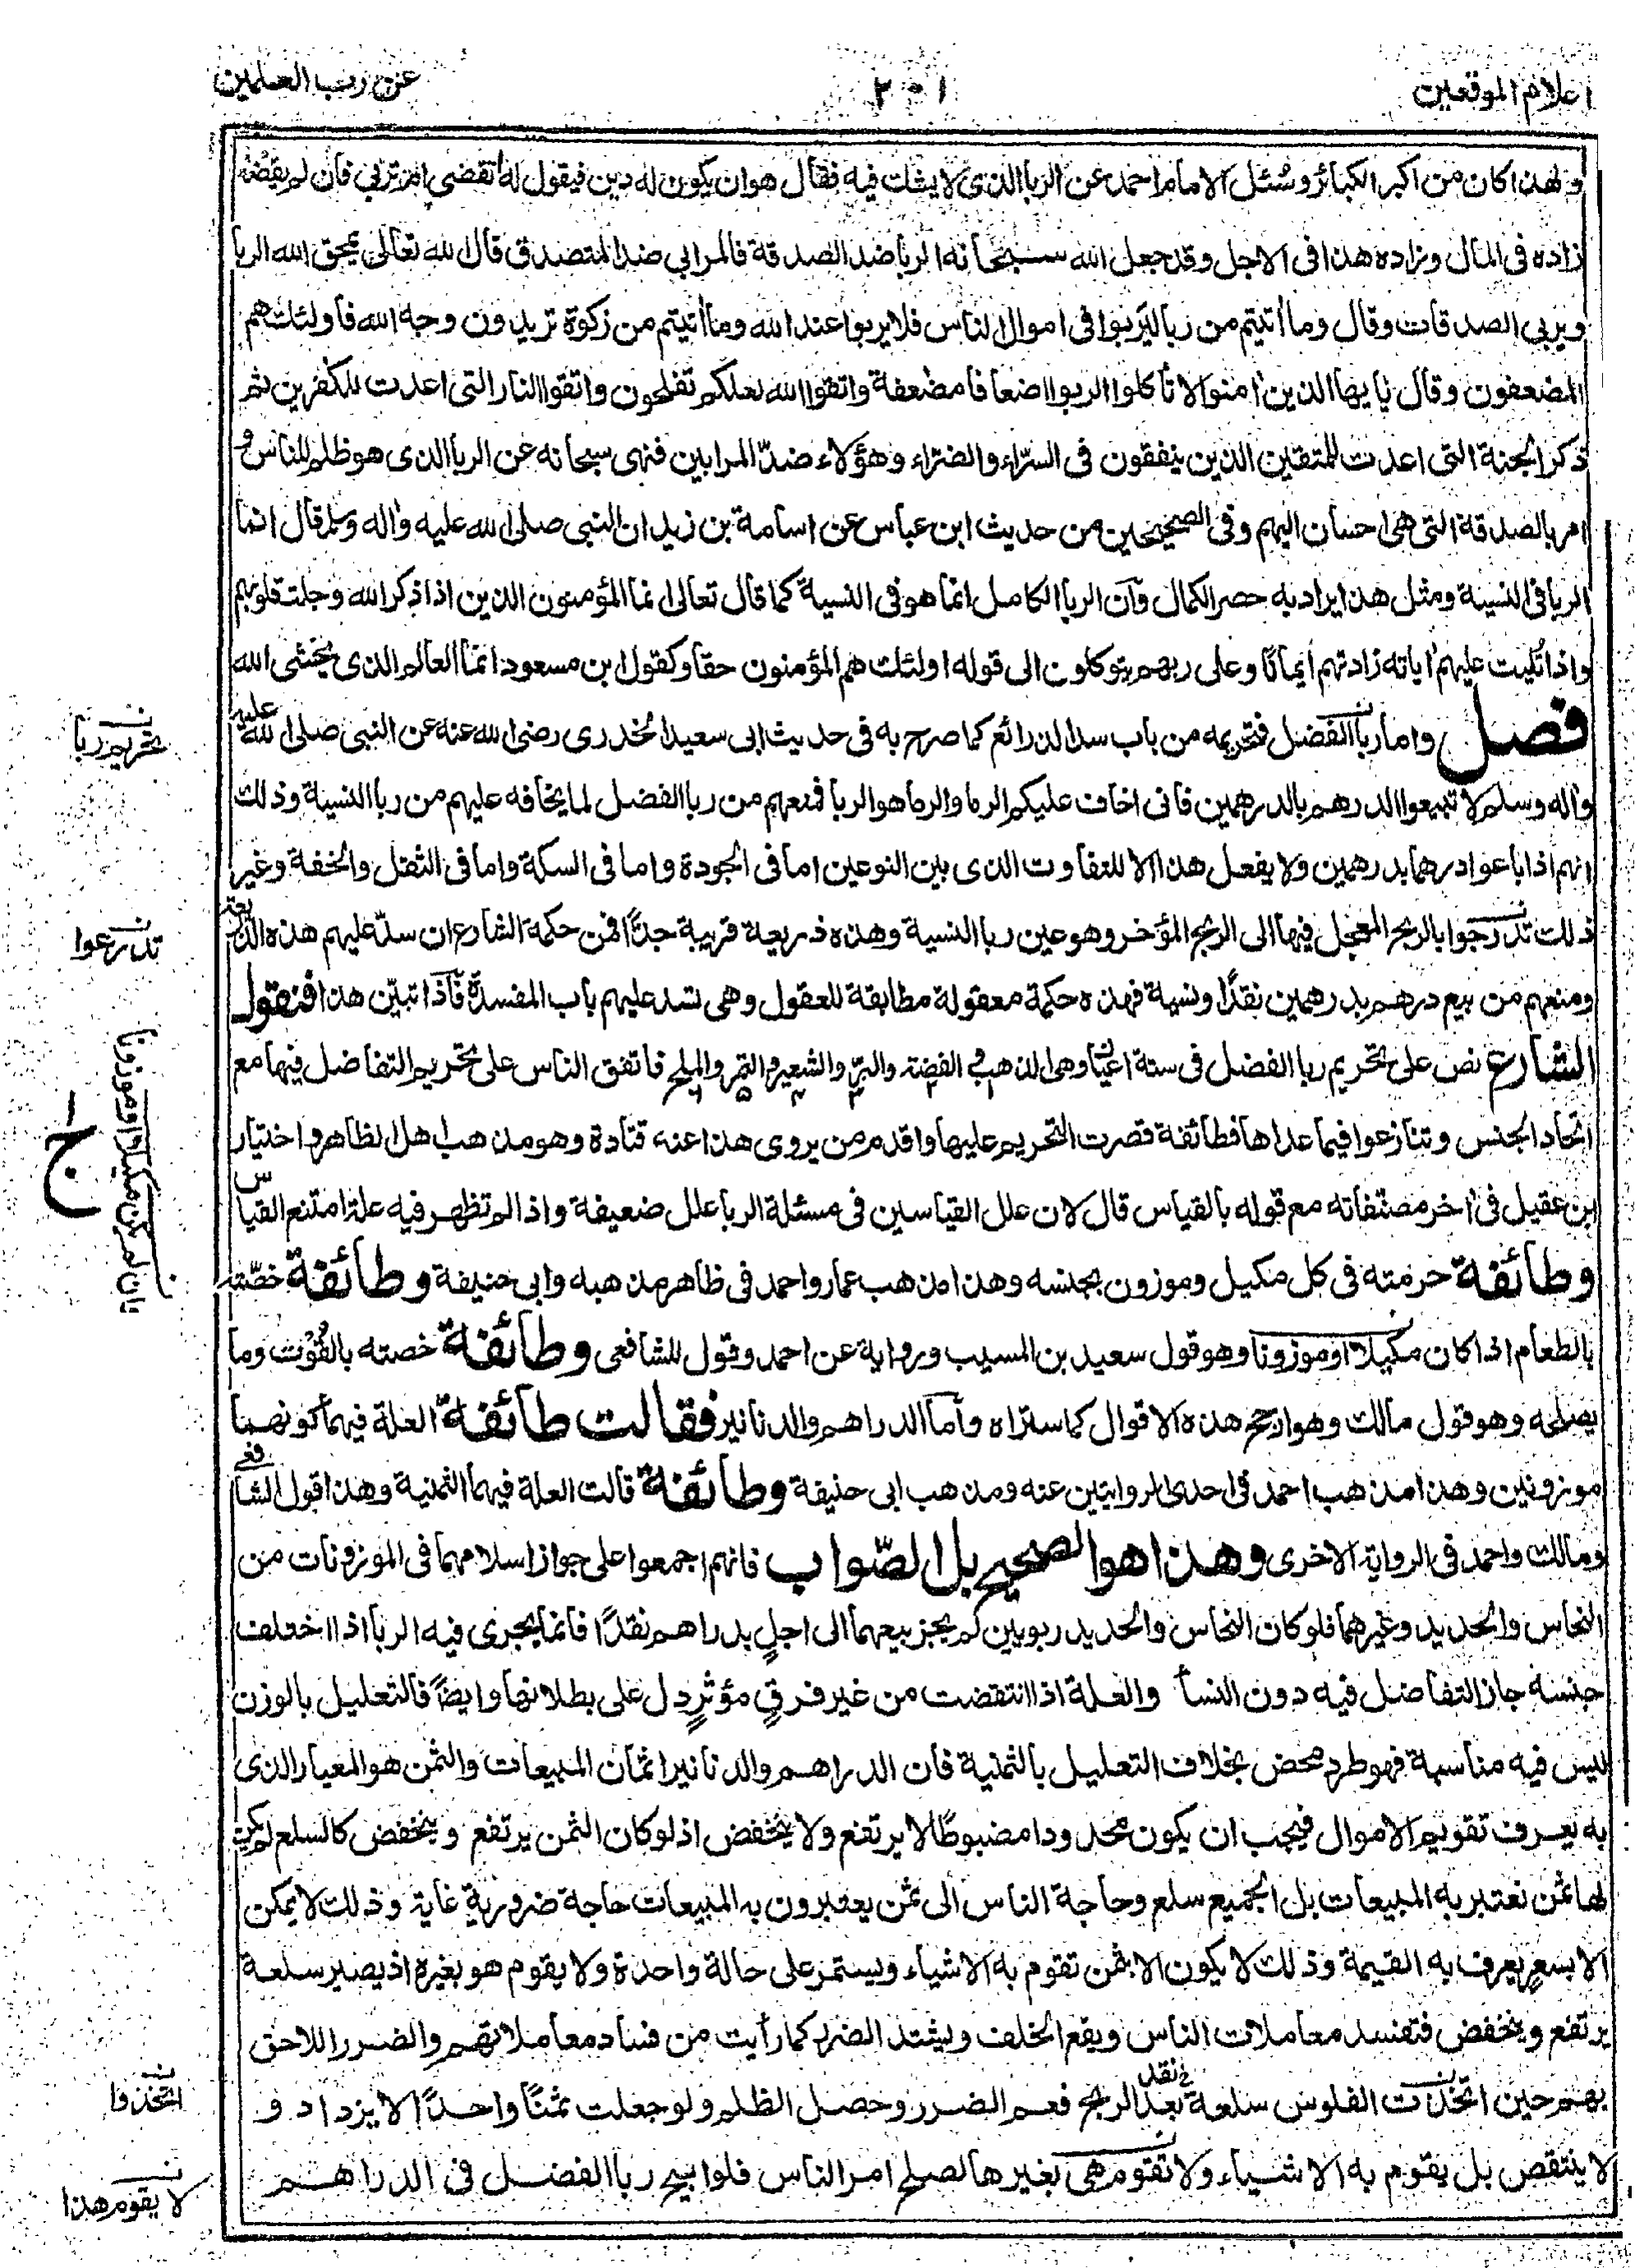 اعلام الموقعين
٢٠١
عن رب العلمين
ولهذا كان من اكبر الكبائر وسُئل الامام احمد عن الربا الذى لا يشك فيه فقال هو ان يكون له دين فيقول له أتقضى ام تربى فان لم يقضه
زاده فى المال وزاده هذا فى الاجل وقد جعل الله سبحانه الربا ضد الصدقة فالمرابي ضد المتصدق قال الله تعالى يمحق الله الربا
ويربى الصدقات وقال وما أتيتم من ربا ليربوا فى اموال الناس فلا يربوا عند الله وما أتيتم من زكوة تريدون وجه الله فاولئك هم
المضعفون وقال يا يها الذين أمنوا لا تأكلوا الربوا اضعافا مضعفة واتقوا الله لعلكم تفلحون واتقوا النار التى اعدت للكفرين ثم
ذكر الجنة التى اعدت للمتقين الذين ينفقون فى السرّاء والضراء وهؤلاء ضدّ المرابين فنهى سبحانه عن الربا الذى هو ظلم للناس و
امر بالصدقة التى هى احسان اليهم وفى الصحيحين من حديث ابن عباس عن اسامة بن زيد ان النبى صلى الله عليه واله وسلم قال انما
الربا فى النسية ومثل هذا يراد به حصر الكمال وآن الربا الكامل انما هو فى النسية كما قال تعالى انما المؤمنون الذين اذا ذكر الله وجلت قلوبهم
واذا تُليت عليهم أياته زادتهم ايمانًا وعلى ربهم يتوكلون الى قوله اولئك هم المؤمنون حقا وكقول ابن مسعود انما العالم الذى يخشى الله
فصل واما ربا الفضل فتحريمه من باب سد الذرائع كما صرح به فى حديث ابى سعيد الخدرى رضى الله عنه عن النبى صلى الله عليه
واله وسلم لا تبيعوا الدرهم بالدرهمين فانى اخاف عليكم الرما والرما هو الربا فمنعهم من ربا الفضل لما يخافه عليهم من ربا النسية وذلك
انهم اذا باعوا درهما بدرهمين ولا يفعل هذا الا للتفاوت الذى بين النوعين اما فى الجودة واما فى السكة واما فى الثقل والخفة وغير
ذلك تدرجوا بالربح المعجل فيها الى الربح المؤخر وهو عين ربا النسية وهذه ذريعة قريبة جدًّا فمن حكمة الشارع ان سدّ عليهم هذه الذريعة
ومنعهم من بيع درهم بدرهمين نقدًا ونسية فهذه حكمة معقولة مطابقة للعقول وهى تسد عليهم باب المفسدة فآذا تبيّن هذا فنقول
الشارع نص على تحريم ربا الفضل فى ستة اعيان وهى الذهب والفضة والبرّ والشعير والتمر والملح فاتفق الناس على تحريم التفاضل فيها مع
اتحاد الجنس وتنازعوا فيما عداها فطائفة قصرت التحريم عليها واقدم من يروى هذا عنه قتادة وهو مذهب اهل الظاهر واختيار
ابن عقيل فى أخر مصنّفاته مع قوله بالقياس قال لان علل القياسين فى مسئلة الربا علل ضعيفة واذا لم تظهر فيه علة امتنع القياس
وطائفة حرمته فى كل مكيل وموزون بجنسه وهذا مذهب عمار واحمد فى ظاهر مذهبه وابى حنيفة وطائفة خصّته
بالطعام اذا كان مكيلا او موزونا وهو قول سعيد بن المسيب ورواية عن احمد وقول للشافعى وطائفة خصته بالقُوْت وما
يصلحه وهو قول مالك وهو ارجح هذه الاقوال كما ستراه وأما الدراهم والدنانير فقالت طائفة العلة فيهما كونهما
موزونين وهذا مذهب احمد فى احدى الروايتين عنه ومذهب ابى حنيفة وطائفة قالت العلة فيهما الثمنية وهذا قول الشافعى
ومالك واحمد فى الرواية الاخرى وهذا هو الصحيح بل الصّواب فانهم اجمعوا على جواز اسلامهما فى الموزونات من
النحاس والحديد وغيرهما فلو كان النحاس والحديد ربويين لم يجز بيعهما الى اجلٍ بدراهم نقدًا فانما يجرى فيه الربا اذا اختلف
جنسه جاز التفاضل فيه دون النسأ والعلة اذا انتقضت من غير فرقٍ مؤثرٍ دل على بطلانها وايضًا فالتعليل بالوزن
ليس فيه مناسبة فهو طرد محض بخلاف التعليل بالثمنية فان الدراهم والدنانير اثمان المبيعات والثمن هو المعيار الذى
به يعرف تقويم الاموال فيجب ان يكون محدودا مضبوطًا لا يرتفع ولا ينخفض اذ لو كان الثمن يرتفع وينخفض كالسلع لم يكن
لها ثمن نعتبر به المبيعات بل الجميع سلع وحاجة الناس الى ثمن يعتبرون به المبيعات حاجة ضرورية غاية وذلك لا يمكن
الا بسعرٍ يعرف به القيمة وذلك لا يكون الا بثمن تقوم به الاشياء ويستمر على حالة واحدة ولا يقوم هو بغيره اذ يصير سلعة
يرتفع وينخفض فتفسد معاملات الناس ويقع الخلف ويشتد الضرر كما رأيت من فساد معاملاتهم والضرر اللاحق
بهم حين اتخذت الفلوس سلعة تعد للربح فعم الضرر وحصل الظلم ولو جعلت ثمنًا واحدًا لا يزداد و
لا ينتقص بل يقوم به الاشياء ولا تقوم هى بغيرها لصلح امر الناس فلو ابيح ربا الفضل فى الدراهم
تحريم ربا
تدرعوا
بان لم يكن مكيلا او موزونا
ج
اتخذوا
لا يقوم هذا